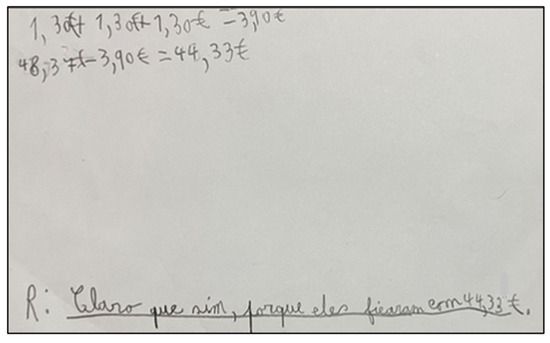 1,30€+ 1,30€+ 1,30€ =3,90€
48,37€-3,90€ =44,33€
R: Claro que sim, porque eles ficaram com 44,33 €.